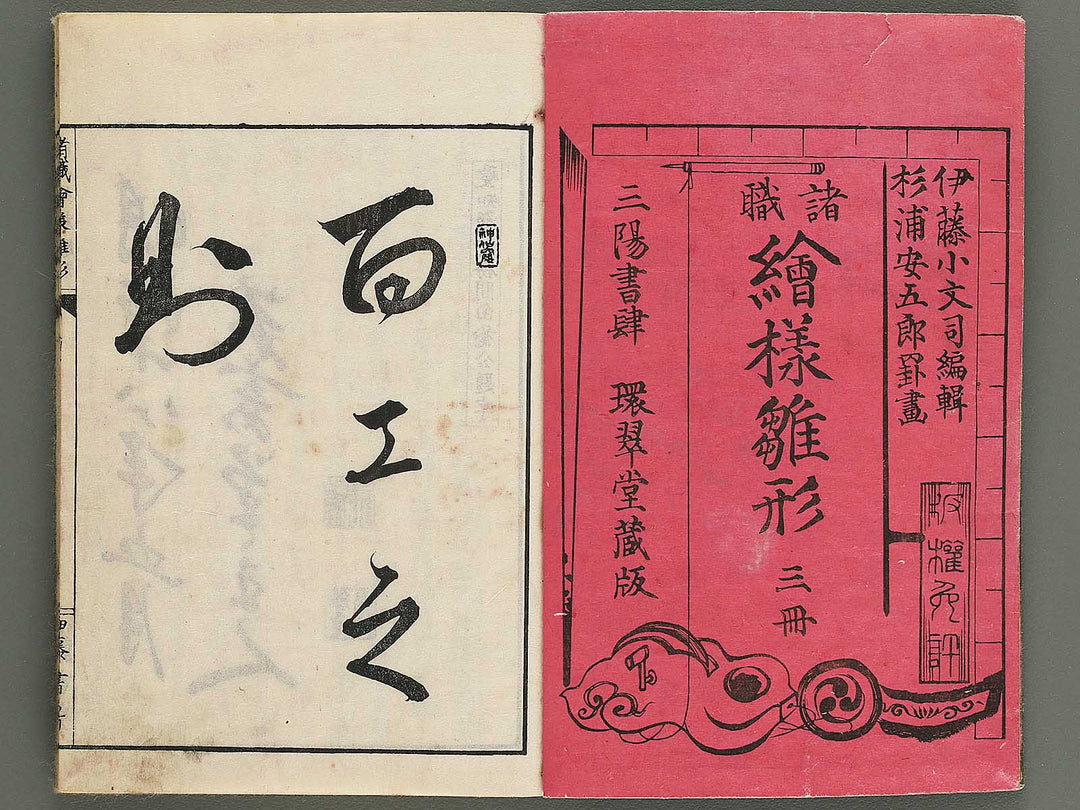 伊藤小文司編輯
杉浦安五郎罫畫
版權免許
諸職
繪樣雛形 三冊
三陽書肆 環翠堂蔵版
百工之
則
諸職會様雛形